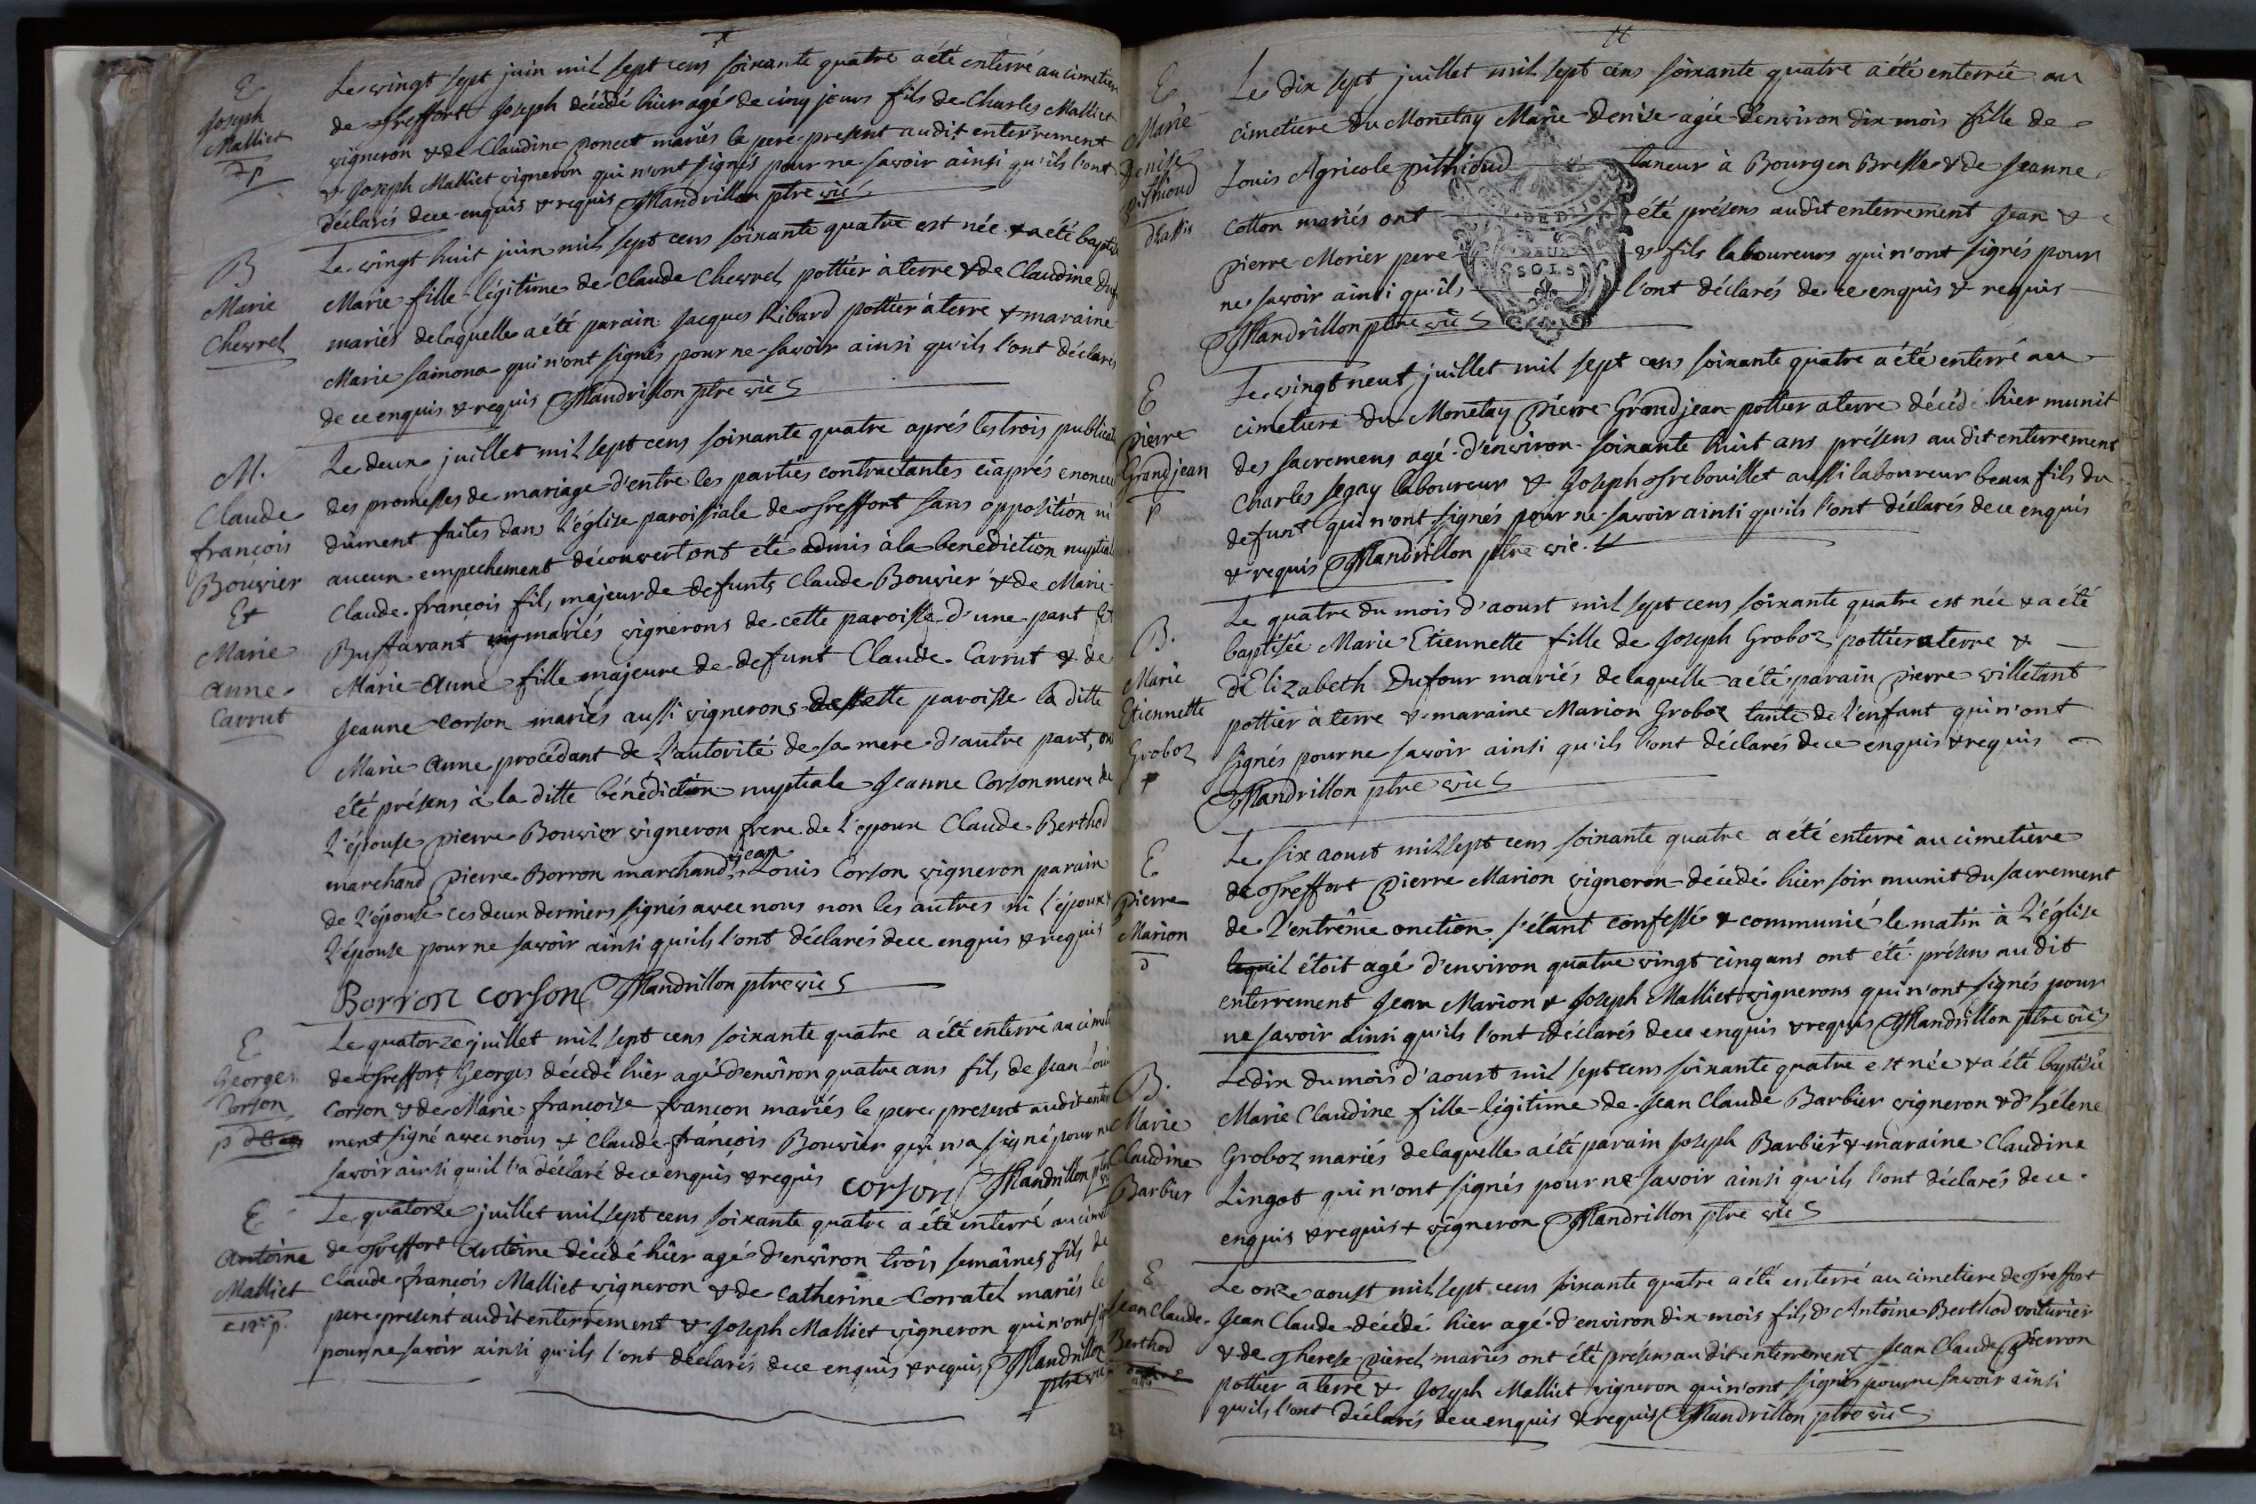 E
Joseph
Malliet
Le vingt sept juin mil sept cens soixante quatre a été enterré au cimetier
de Treffort Joseph décédé hier agé de cinq jours fils de Charles Malliet
vigneron & de Claudine poncet mariés le pere present audit enterrement
& Joseph Malliet vigneron qui n'ont signés pour ne savoir ainsi qu'ils l'ont
déclarés de ce enquis & requis Mandrillon ptre vic
B
Marie
Chevrel
Le vingt huit juin mil sept cens soixante quatre est née & a été baptis
Marie fille légitime de Claude Chevrel pottier à terre & de Claudine
mariés de laquelle a été parain Jacques Ribard pottier à terre & maraine
Marie saimona qui n'ont signés pour ne savoir ainsi qu'ils l'ont déclarés
de ce enquis & requis Mandrillon ptre vic
M.
Claude
françois
Bouvier
Et
Marie
anne
Carrut
Le deux juillet mil sept cens soixante quatre aprés les trois publicat
des promesses de mariage d'entre les parties contractantes ciaprés enonce
dûment faites dans l'église paroissiale de Treffort sans opposition ni
aucun empechement découvert ont été admis à la benediction nuptial
Claude françois fils majeur de defunts Claude Bouvier & de Marie
Buffavant vig mariés vignerons de cette paroisse d'une part Et
Marie Anne fille majeure de defunt Claude Carrut & de
Jeanne Corson mariés aussi vignerons de cette paroisse la ditte
Marie Anne procédant de l'autorité de sa mere d'autre part, on
été présens à la ditte bénédiction nuptiale Jeanne Corson mere de
l'épouse pierre Bouvier vigneron frere de l'epoux Claude Berthod
marchand pierre Borron marchand & jean Louis Corson vigneron parain
de l'épouse ces deux derniers signés avec nous non les autres ni l'époux
l'épouse pour ne savoir ainsi qu'ils l'ont déclarés de ce enquis & requis
Borron corson Mandrillon ptre vic
E
Georges
Corson
p
Le quatorze juillet mil sept cens soixante quatre a été enterré au cimeti
de Treffort Georges décédé hier agé d'environ quatre ans fils de Jean Loui
Corson & de Marie françoise françon mariés le pere present audit enter
ment signé avec nous & Claude françois Bouvier qui n'a signé pour ne
savoir ainsi qu'il l'a déclaré de ce enquis & requis corson Mandrillon ptre
E
Antoine
Malliet
Le quatorze juillet mil sept cens soixante quatre a été enterré au cimet
de Treffort Antoine décédé hier agé d'environ trois semaines fils de
Claude françois Malliet vigneron & de Catherine Corratel mariés le
pere present audit enterrement & Joseph Malliet vigneron qui n'ont
pour ne savoir ainsi qu'ils l'ont déclarés de ce enquis & requis Mandrillon
ptre vic
E
Marie
Denise
pithioud
Le dix sept juillet mil sept cens soixante quatre a été enterrée au
cimetiere du Monetay Marie Denise agée d'environ dix mois fille de
Louis Agricole pithioud taneur à Bourg en Bresse & de Jeanne
Cotton mariés ont été présens audit enterrement Jean &
pierre Morier pere & fils laboureurs qui n'ont signés pour
ne savoir ainsi qu'ils l'ont déclarés de ce enquis & requis
Mandrillon ptre vic
DEUX
SOLS
E
pierre
Grandjean
p
Le vingt neuf juillet mil sept cens soixante quatre a été enterré au
cimetiere du Monetay pierre Grandjean pottier a terre décédé hier munit
des sacremens agé d'environ soixante huit ans présens audit enterrement
Charles segay laboureur & Joseph Trebouillet aussi laboureur beaux fils du
defunt qui n'ont signés pour ne savoir ainsi qu'ils l'ont déclarés de ce enquis
& requis Mandrillon ptre vic.
B.
Marie
Etiennette
Groboz
Le quatre du mois d'aoust mil sept cens soixante quatre est née & a été
baptisée Marie Etiennette fille de Joseph Groboz pottier a terre &
d'Elizabeth Dufour mariés de laquelle a été parain pierre villetant
pottier à terre & maraine Marion Groboz tante de l'enfant qui n'ont
signés pour ne savoir ainsi qu'ils l'ont déclarés de ce enquis & requis
Mandrillon ptre vic
E
pierre
Marion
Le six aoust mil sept cens soixante quatre a été enterré au cimetière
de Treffort Pierre Marion vigneron décédé hier soir munit du sacrement
de l'entrême onction s'étant confessé & communié le matin à l'église
lequel étoit agé d'environ quatre vingt cinq ans ont été présens audit
enterrement Jean Marion & Joseph Malliet vignerons qui n'ont signés pour
ne savoir ainsi qu'ils l'ont déclarés de ce enquis & requis Mandrillon ptre vic
B.
Marie
Claudine
Barbier
Le dix du mois d'aoust mil sept cens soixante quatre est née & a été baptisée
Marie Claudine fille légitime de Jean Claude Barbier vigneron & d'hélene
Groboz mariés de laquelle a été parain Joseph Barbier + & maraine Claudine
Lingot qui n'ont signés pour ne savoir ainsi qu'ils l'ont déclarés de ce
enquis & requis + vigneron Mandrillon ptre vic
E
Jean Claude
Berthod
Le onze aoust mil sept cens soixante quatre a été enterré au cimetiere de Treffort
Jean Claude décédé hier agé d'environ dix mois fils d'Antoine Berthod voiturier
& de Therese pierel mariés ont été présens audit enterrement Jean Claude Pierron
pottier a terre & Joseph Malliet vigneron qui n'ont signés pour ne savoir ainsi
qu'ils l'ont déclarés de ce enquis & requis Mandrillon ptre vic